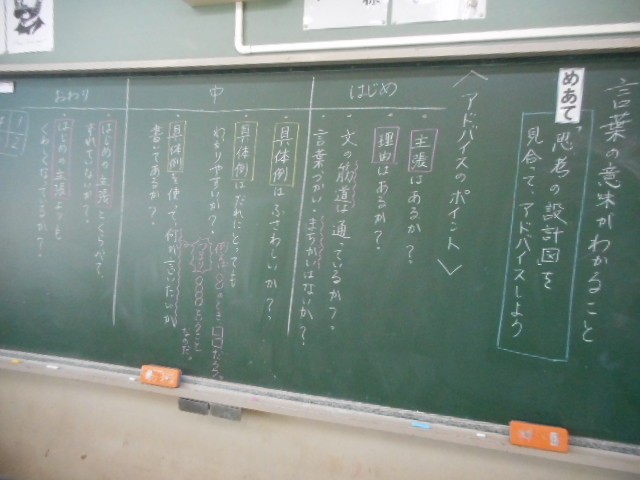 言葉の意味がわかること
めあて
「思考の設計図を
見合って、アドバイスしよう
＜アドバイスのポイント＞
はじめ
・主張はあるか？
・理由はあるか？
・文の筋道は通っているか？
・言葉づかい・まちがいはないか？
中
・具体例はふさわしいか？
・具体例はだれにとっても
わかりやすいか？
・具体例を使って、何が言いたいか
書いてあるか？
なのだ。
おわり
・はじめの主張とくらべて、
それていないか？
・はじめの主張よりも
くわしくなっているか？
様